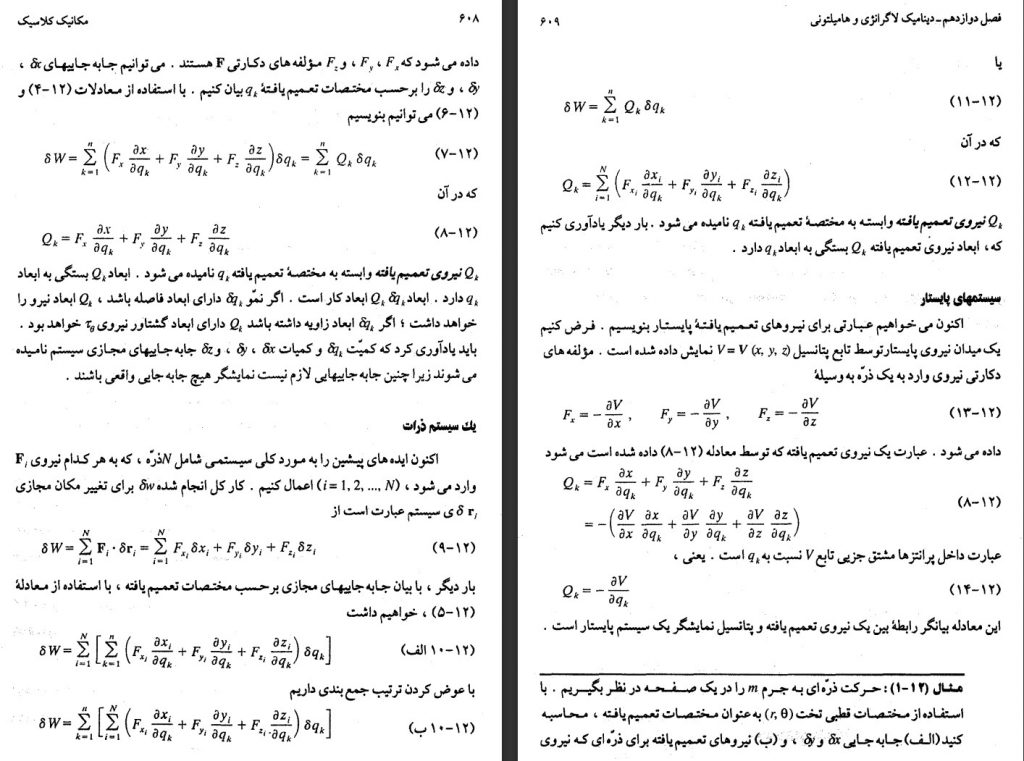 ۶۰۸ مکانیک کلاسیک
داده می شود که Fx ، Fy ، و Fz مؤلفه های دکارتی F هستند . می توانیم جابه جاییهای δx ،
δy ، و δz را برحسب مختصات تعمیم یافتهٔ qk بیان کنیم . با استفاده از معادلات (۱۲-۴) و
(۱۲-۶) می توانیم بنویسیم
δW = Σ_{k=1}^{n} (Fx ∂x/∂qk + Fy ∂y/∂qk + Fz ∂z/∂qk) δqk = Σ_{k=1}^{n} Qk δqk (۷-۱۲)
که در آن
Qk = Fx ∂x/∂qk + Fy ∂y/∂qk + Fz ∂z/∂qk (۸-۱۲)
Qk نیروی تعمیم یافته وابسته به مختصهٔ تعمیم یافته qk نامیده می شود . ابعاد Qk بستگی به ابعاد
qk دارد . ابعاد Qk δqk ابعاد کار است . اگر نمّو δqk دارای ابعاد فاصله باشد ، Qk ابعاد نیرو را
خواهد داشت ؛ اگر δqk ابعاد زاویه داشته باشد Qk دارای ابعاد گشتاور نیروی τθ خواهد بود .
باید یادآوری کرد که کمیّت δqk و کمیات δx ، δy ، و δz جابه جاییهای مجازی سیستم نامیده
می شوند زیرا چنین جابه جاییهایی لازم نیست نمایشگر هیچ جابه جایی واقعی باشند .
یك سیستم ذرات
اکنون ایده های پیشین را به مورد کلی سیستمی شامل N ذرّه ، که به هر کدام نیروی Fi
وارد می شود ، (i = 1, 2, ..., N) اعمال کنیم . کار کل انجام شده δw برای تغییر مکان مجازی
δ ri ی سیستم عبارت است از
δW = Σ_{i=1}^{N} Fi · δri = Σ_{i=1}^{N} Fxi δxi + Fyi δyi + Fzi δzi (۹-۱۲)
بار دیگر ، با بیان جابه جاییهای مجازی برحسب مختصات تعمیم یافته ، با استفاده از معادلهٔ
(۵-۱۲) ، خواهیم داشت
δW = Σ_{i=1}^{N} [Σ_{k=1}^{n} (Fxi ∂xi/∂qk + Fyi ∂yi/∂qk + Fzi ∂zi/∂qk) δqk] (۱۲-۱۰ الف)
با عوض کردن ترتیب جمع بندی داریم
δW = Σ_{k=1}^{n} [Σ_{i=1}^{N} (Fxi ∂xi/∂qk + Fyi ∂yi/∂qk + Fzi ∂zi/∂qk) δqk] (۱۲-۱۰ ب)
فصل دوازدهم ـ دینامیک لاگرانژی و هامیلتونی ۶۰۹
یا
δW = Σ_{k=1}^{n} Qk δqk (۱۱-۱۲)
که در آن
Qk = Σ_{i=1}^{N} (Fxi ∂xi/∂qk + Fyi ∂yi/∂qk + Fzi ∂zi/∂qk) (۱۲-۱۲)
Qk نیروی تعمیم یافته وابسته به مختصهٔ تعمیم یافته qk نامیده می شود . بار دیگر یادآوری کنیم
که ، ابعاد نیروی تعمیم یافته Qk بستگی به ابعاد qk دارد .
سیستمهای پایستار
اکنون می خواهیم عبارتی برای نیروهای تعمیم یافتهٔ پایستار بنویسیم . فرض کنیم
یک میدان نیروی پایستار توسط تابع پتانسیل V = V (x, y, z) نمایش داده شده است . مؤلفه های
دکارتی نیروی وارد به یک ذرّه به وسیلهٔ
Fx = − ∂V/∂x , Fy = − ∂V/∂y , Fz = − ∂V/∂z (۱۳-۱۲)
داده می شود . عبارت یک نیروی تعمیم یافته که توسط معادله (۱۲-۸) داده شده است می شود
Qk = Fx ∂x/∂qk + Fy ∂y/∂qk + Fz ∂z/∂qk (۸-۱۲)
= −(∂V/∂x ∂x/∂qk + ∂V/∂y ∂y/∂qk + ∂V/∂z ∂z/∂qk)
عبارت داخل پرانتزها مشتق جزیی تابع V نسبت به qk است . یعنی ،
Qk = − ∂V/∂qk (۱۴-۱۲)
این معادله بیانگر رابطهٔ بین یک نیروی تعمیم یافته و پتانسیل نمایشگر یک سیستم پایستار است .
مثال (۱۲-۱) : حرکت ذرّه ای به جرم m را در یک صفحه در نظر بگیریم . با
استفاده از مختصات قطبی تخت (r, θ) به عنوان مختصات تعمیم یافته ، محاسبه
کنید (الف) جابه جایی δx و δy ، و (ب) نیروهای تعمیم یافته برای ذرّه ای که نیروی